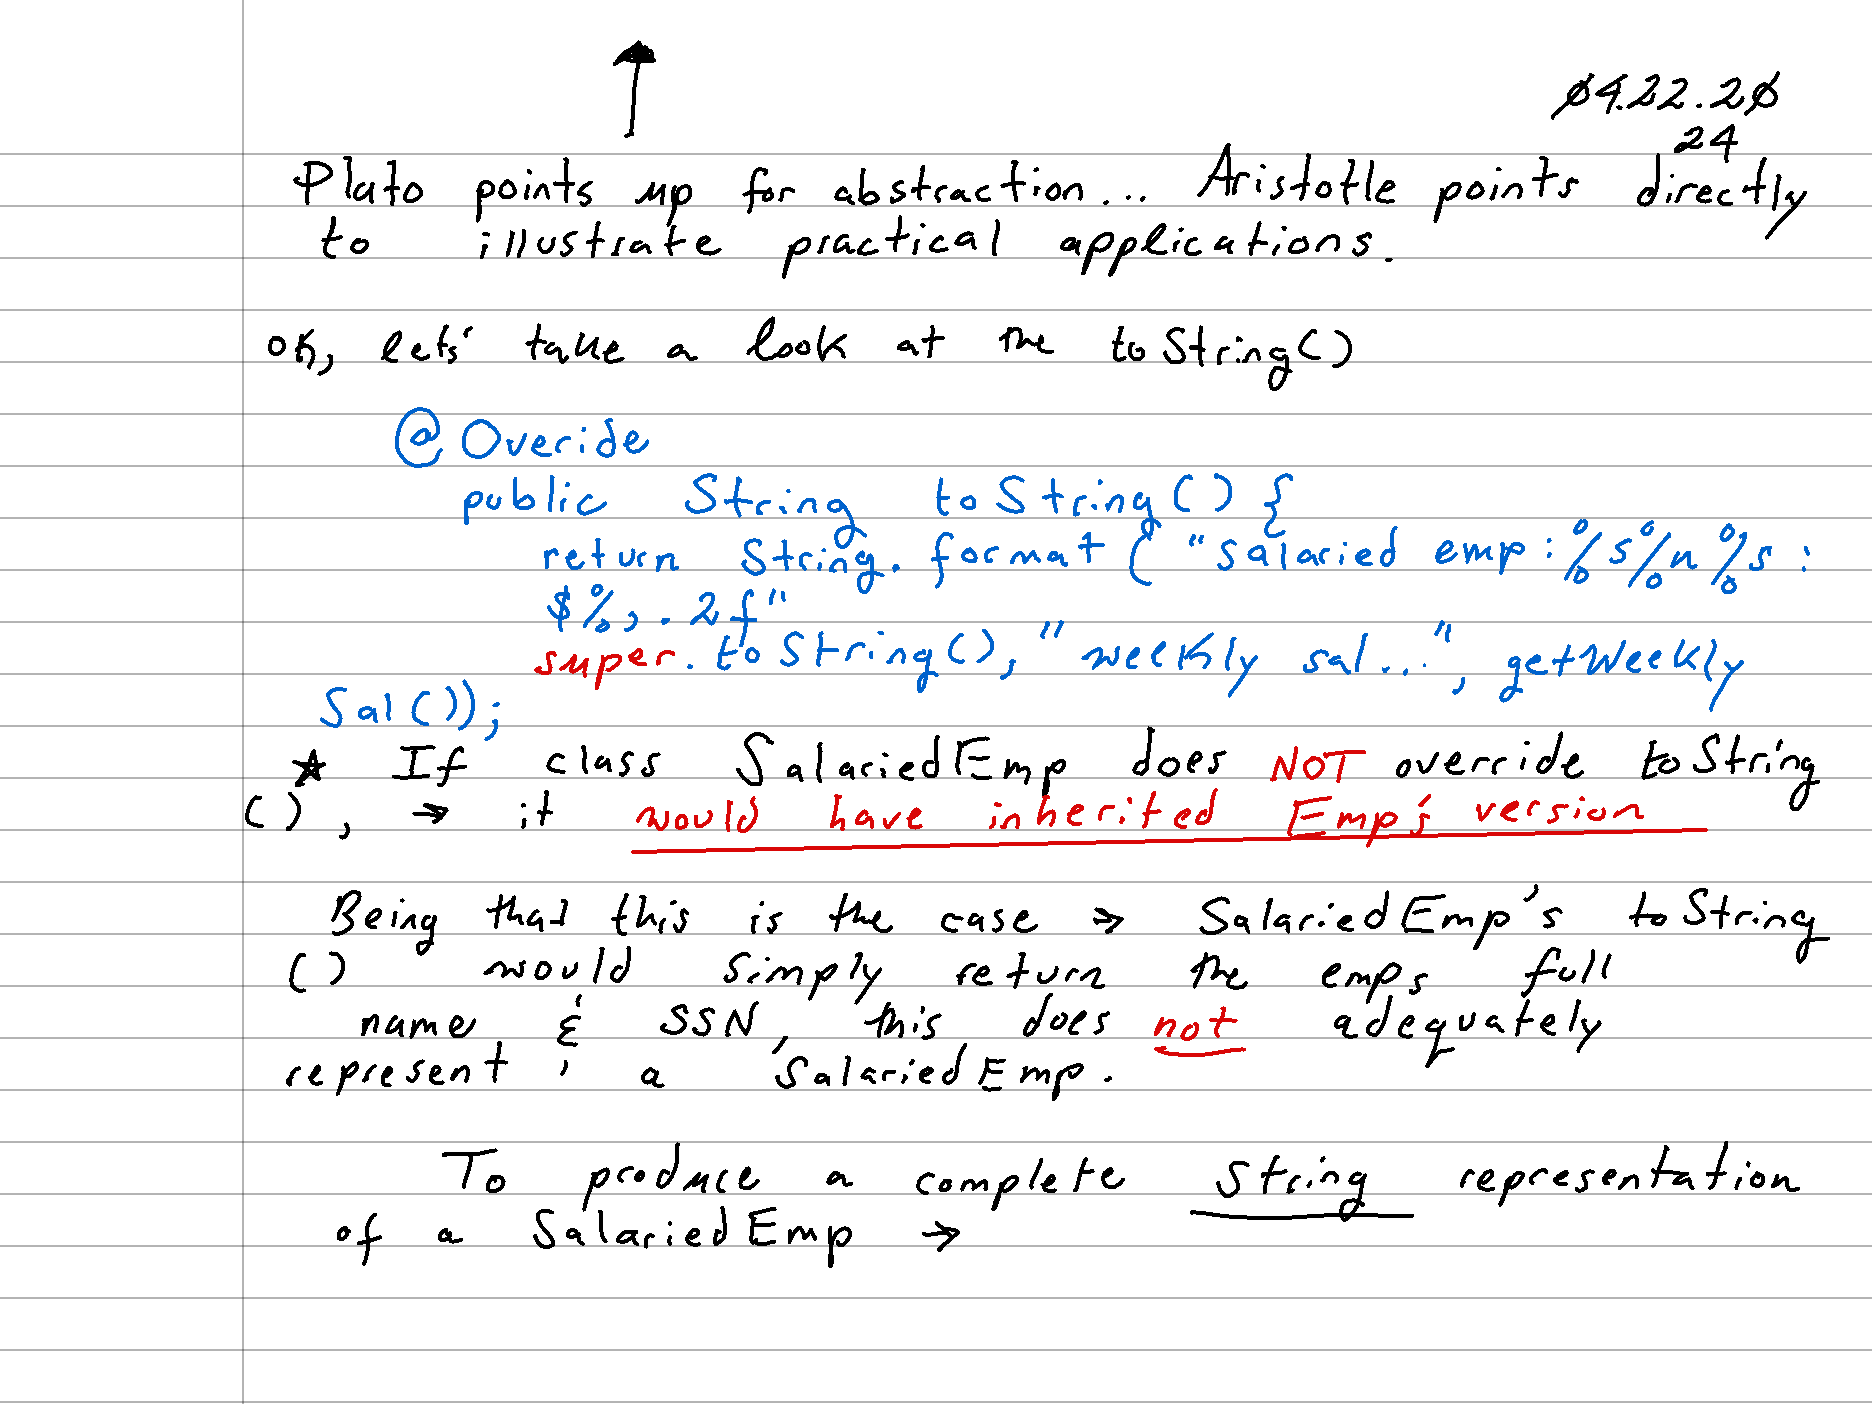 04.22.20
24
Plato points up for abstraction... Aristotle points directly
to illustrate practical applications.
OK, lets' take a look at the toString()
@Overide
public String toString() {
return String.format("salaried emp:%s%n%s:
$%,.2f"
super.toString(), "weekly sal...", getWeekly
Sal());
★ If class SalariedEmp does NOT override toString
(), → it would have inherited Emp's version
Being that this is the case → SalariedEmp's toString
() would simply return the emps full
name & SSN, this does not adequately
represent a SalariedEmp.
To produce a complete String representation
of a SalariedEmp →